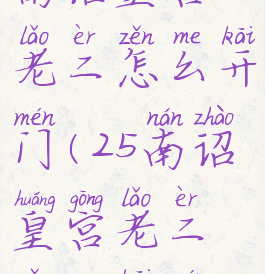 lǎo èr zěn me kāi
老二怎么开
mén nán zhào
门(25南诏
huáng gōng lǎo èr
皇宫老二